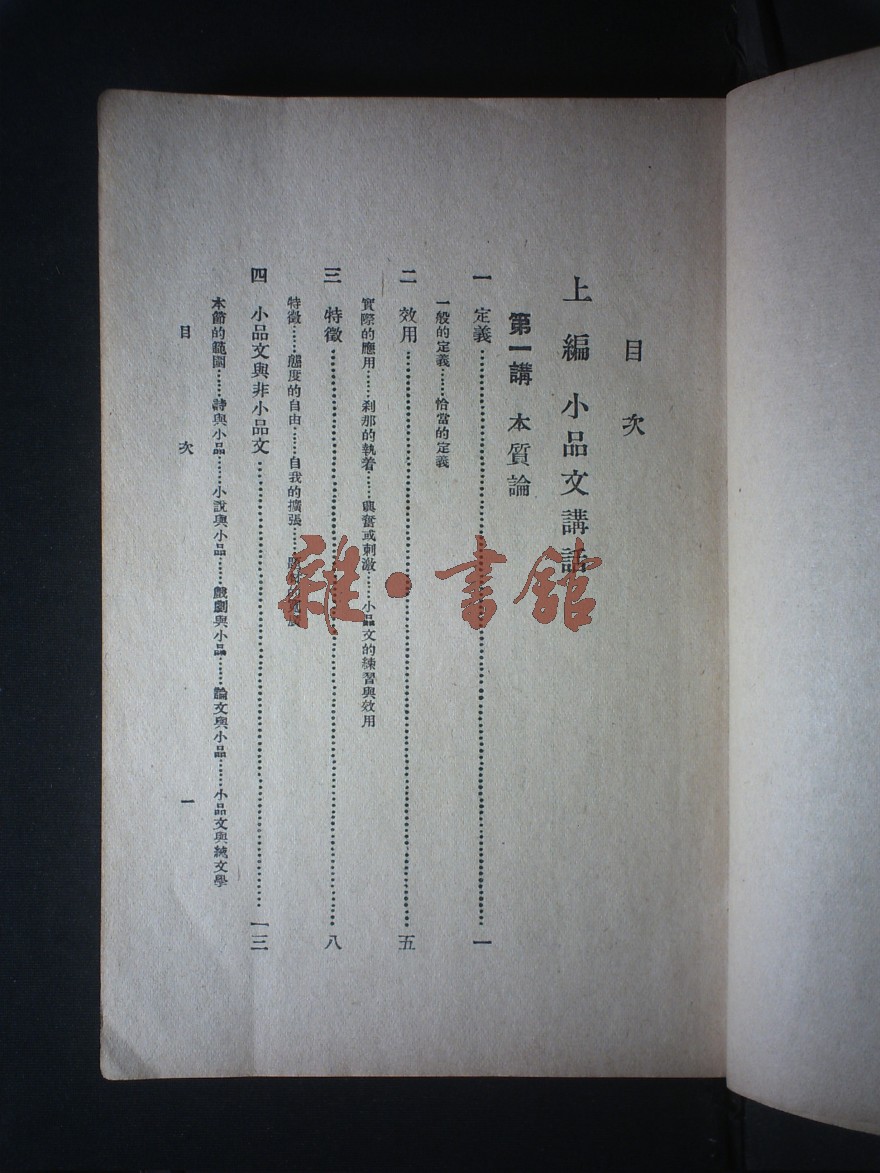 目次
上編 小品文講話
第一講 本質論
一 定義……一
一般的定義……恰當的定義
二 效用……五
實際的應用……刹那的執着……興奮或刺激……小品文的練習與效用
三 特徵……八
特徵……態度的自由……自我的擴張……
四 小品文與非小品文……一三
本節的範圍……詩與小品……小說與小品……戲劇與小品……論文與小品……小品文與純文學
目次 一
雜·書館